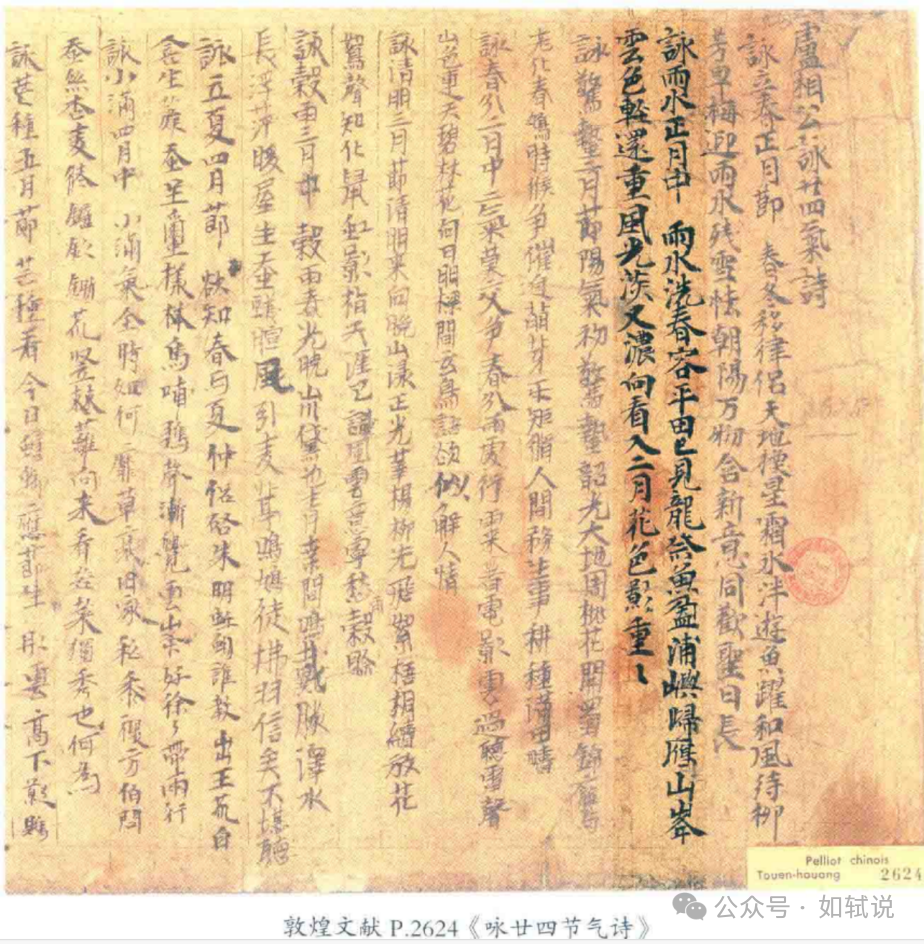 盧相公詠廿四氣詩
詠立春正月節 春冬移律呂天地換星霜冰泮遊魚躍和風待柳
芳早梅迎雨水残雪怯朝陽万物含新意同歡聖日長
詠雨水正月中 雨水洗春容平田已見龍祭魚盈浦嶼歸鴈山峯
雲色輕還重風光淡又濃向看入二月花色影重〻
詠驚蟄二月節陽氣初驚蟄韶光大地周桃花開蜀錦鷹
老化春鳩時候争催迫萌芽人間務生事耕種滿田疇
詠春分二月中二氣莫交争春分雨處行雨来看電影雲過聽雷聲
山色連天碧林花向日明梁間玄鳥語欲似解人情
詠清明三月節清明来向晚山渌正光華楊柳先飛絮梧桐續放花
鴽聲知化鼠虹影指天涯已識風雲意寧愁穀雨賒
詠穀雨三月中 穀雨春光曉山川黛色青葉間鳴戴勝澤水
長浮萍暖屋生蚕蟻暄風引麦葶鳴鳩徒拂羽信矣不堪聽
詠立夏四月節 欲知春与夏仲侣啓朱明蚯蚓誰教出王苽自
含生簇蚕呈蠒樣林鳥哺雛聲漸覺雲山好徐〻帶雨行
詠小滿四月中 小滿氣全時如何靡草衰田家私黍稷方伯問
蚕絲杏麦修鐮釤鋤苽竪棘籬向来看苦菜獨秀也何為
詠芒種五月節 芒種看今日螗螂應節生彤雲高下影
Pelliot chinois
Touen-houang 2624
公众号 · 如轼说
敦煌文献 P.2624《咏廿四节气诗》